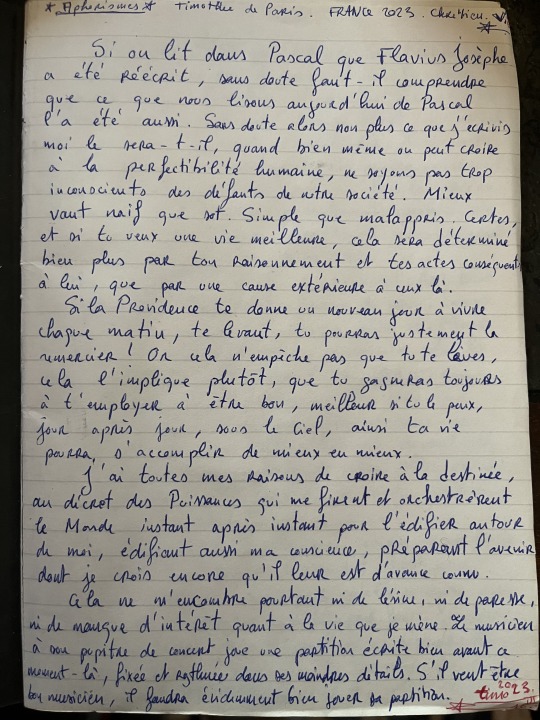 * Aphorismes * Timothée de Paris. FRANCE 2023. Chrétien.
Si on lit dans Pascal que Flavius Josèphe
a été réécrit, sans doute faut-il comprendre
que ce que nous lisons aujourd'hui de Pascal
l'a été aussi. Sans doute alors non plus ce que j'écrivis
moi le sera-t-il, quand bien même on peut croire
à la perfectibilité humaine, ne soyons pas trop
inconscients des défauts de notre société. Mieux
vaut naïf que sot. Simple que malappris. Certes,
et si tu veux une vie meilleure, cela sera déterminé
bien plus par ton raisonnement et tes actes conséquents
à lui, que par une cause extérieure à ceux là.
Si la Providence te donne un nouveau jour à vivre
chaque matin, te levant, tu pourras justement la
remercier ! Or cela n'empêche pas que tu te laves,
cela l'implique plutôt, que tu gagneras toujours
à t'employer à être bon, meilleur si tu le peux,
jour après jour, sous le Ciel, ainsi ta vie
pourra, s'accomplir de mieux en mieux.
J'ai toutes mes raisons de croire à la destinée,
au décret des Puissances qui me firent et orchestrèrent
le Monde instant après instant pour l'édifier autour
de moi, édifiant aussi ma conscience, préparant l'avenir
dont je crois encore qu'il leur est d'avance connu.
Cela ne m'encombre pourtant ni de lésine, ni de paresse,
ni de manque d'intérêt quant à la vie que je mène. Le musicien
à son pupitre de concert joue une partition écrite bien avant ce
moment-là, fixée et rythmée dans ses moindres détails. S'il veut être
bon musicien, il faudra évidemment bien jouer sa partition.
timo 2023.